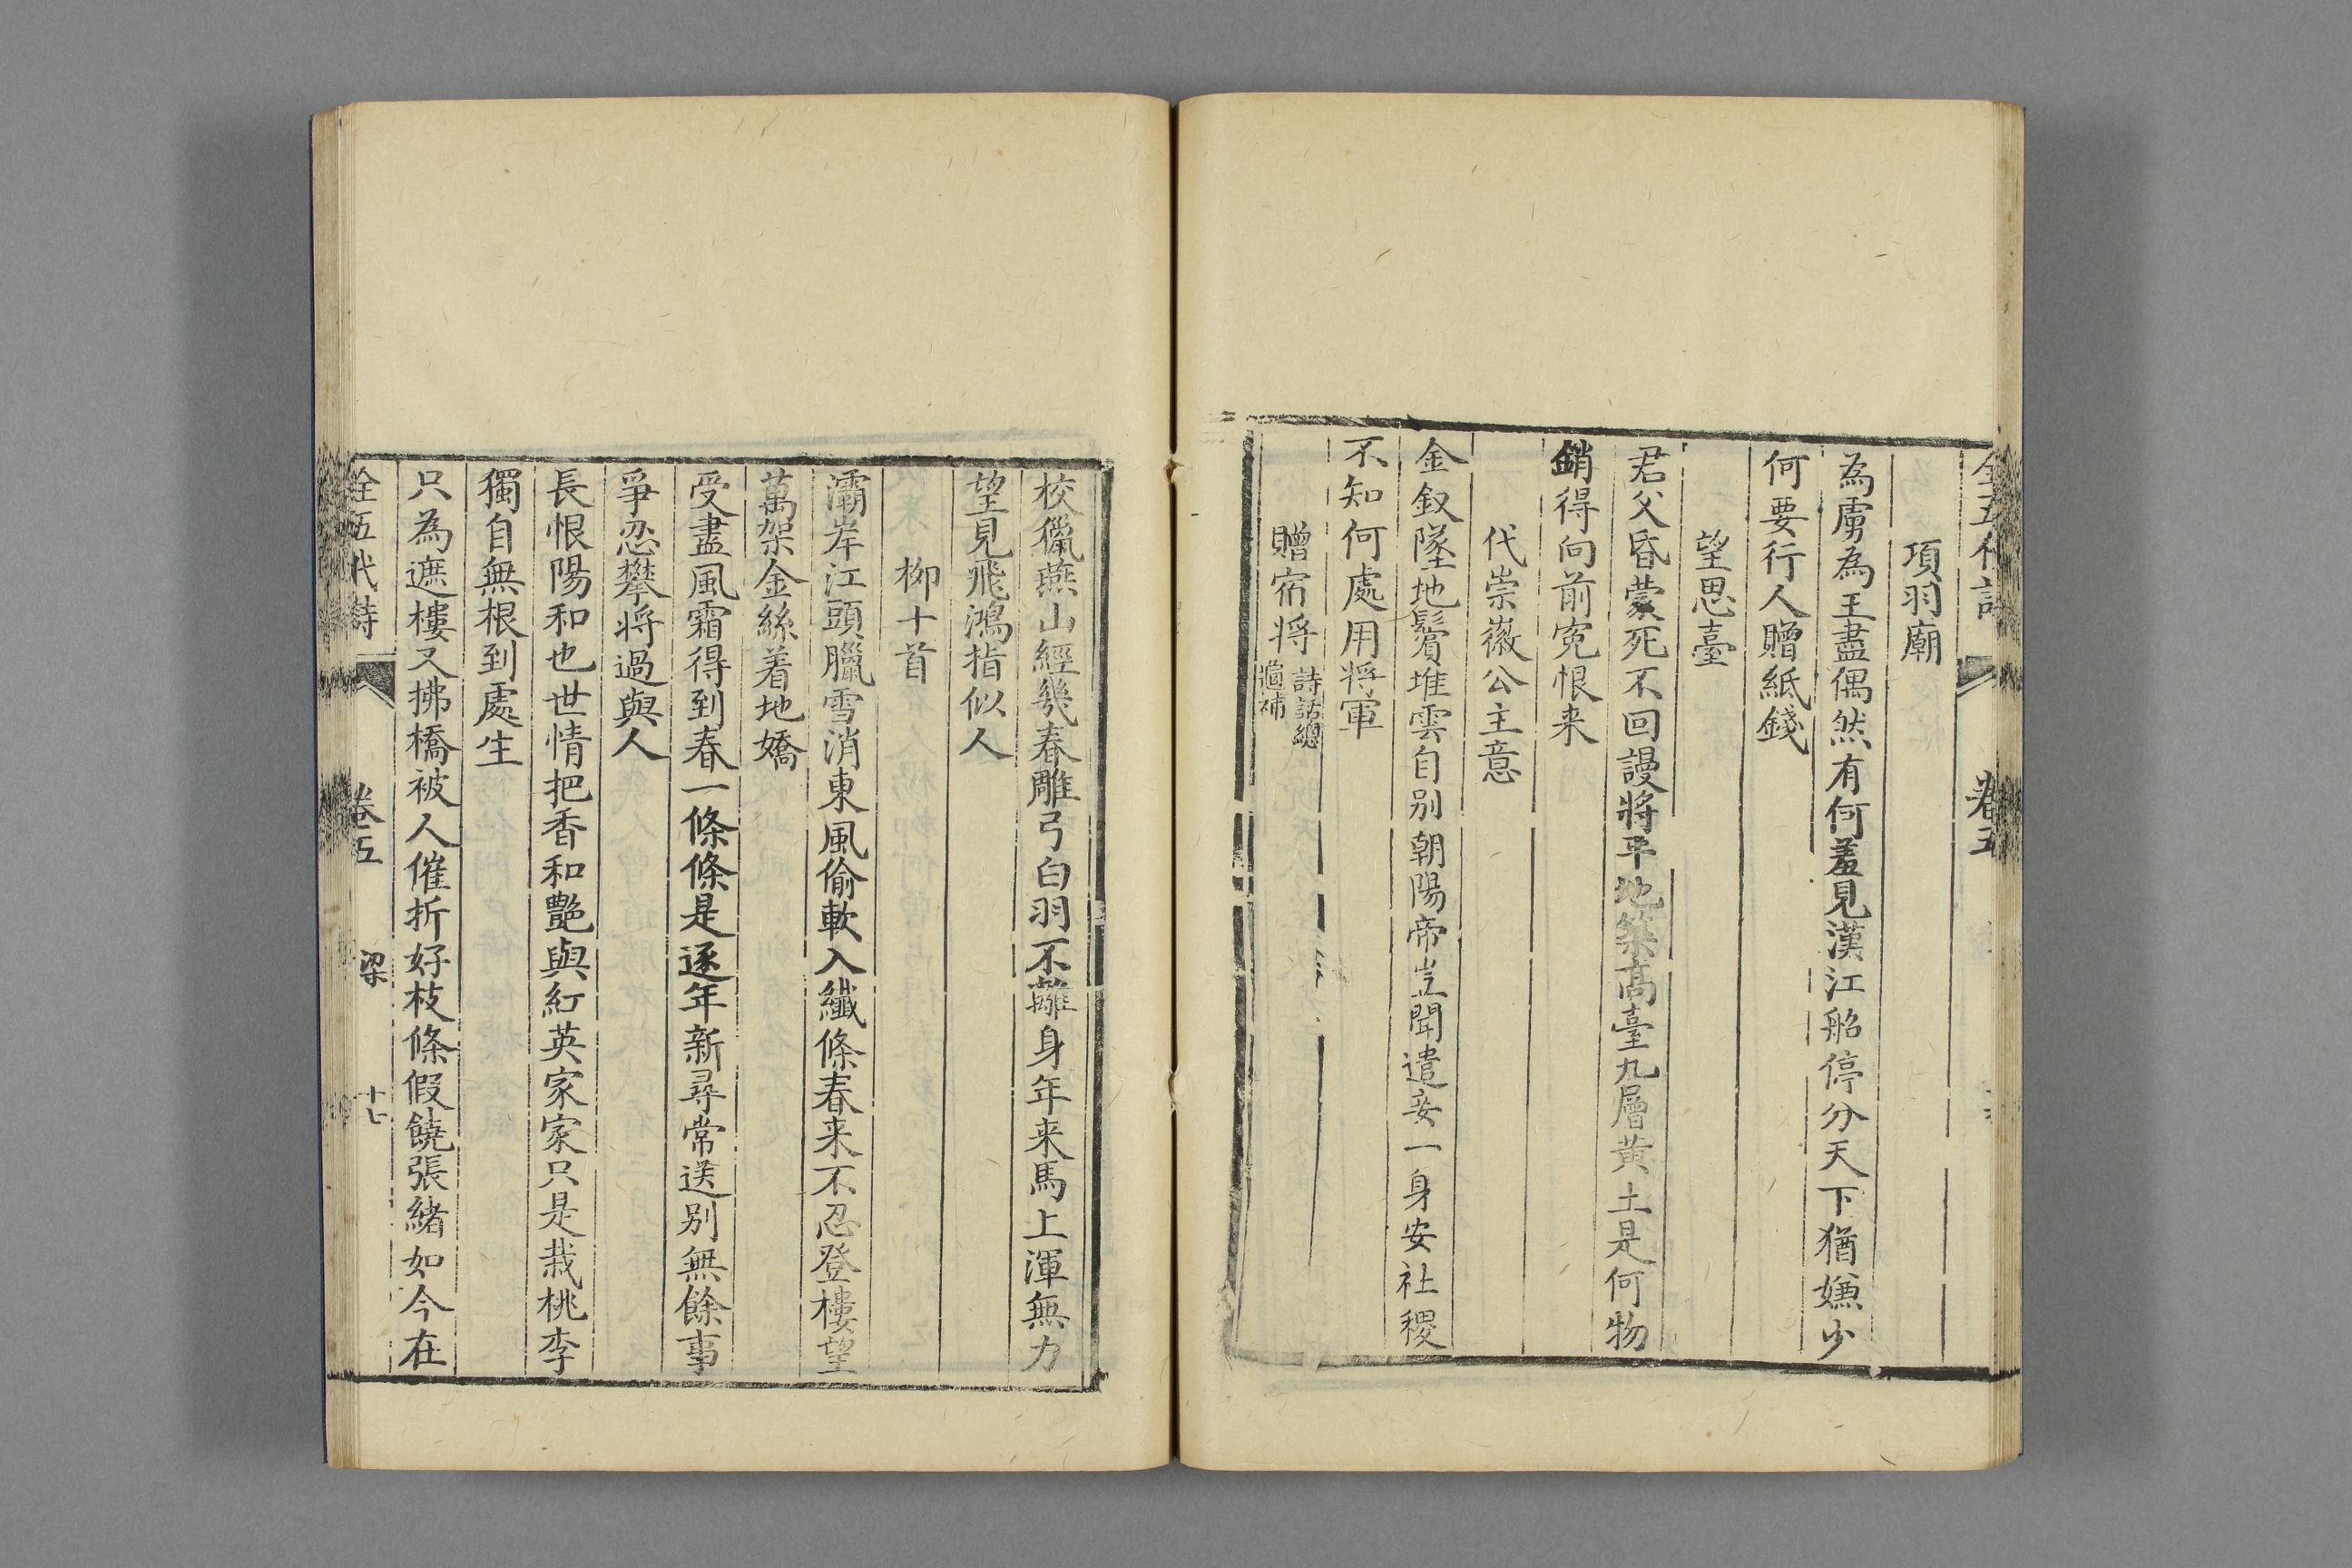 全五代詩
卷五
項羽廟
為虜為王盡偶然有何羞見漢江船停分天下猶嫌少
何要行人贈紙錢
望思臺
君父昏蒙死不回謾將平地築高臺九層黄土是何物
銷得向前寃恨来
代崇徽公主意
金釵墜地鬢堆雲自别朝陽帝豈聞遣妾一身安社稷
不知何處用將軍
贈宿將
詩話總
龜補
校獵燕山經幾春雕弓白羽不離身年来馬上渾無力
望見飛鴻指似人
柳十首
灞岸江頭臘雪消東風偷軟入纖條春来不忍登樓望
萬架金絲着地嬌
受盡風霜得到春一條條是逐年新尋常送别無餘事
爭忍攀將過與人
長恨陽和也世情把香和艷與紅英家家只是栽桃李
獨自無根到處生
只為遮樓又拂橋被人催折好枝條假饒張緒如今在
全五代詩
卷五
梁
十七